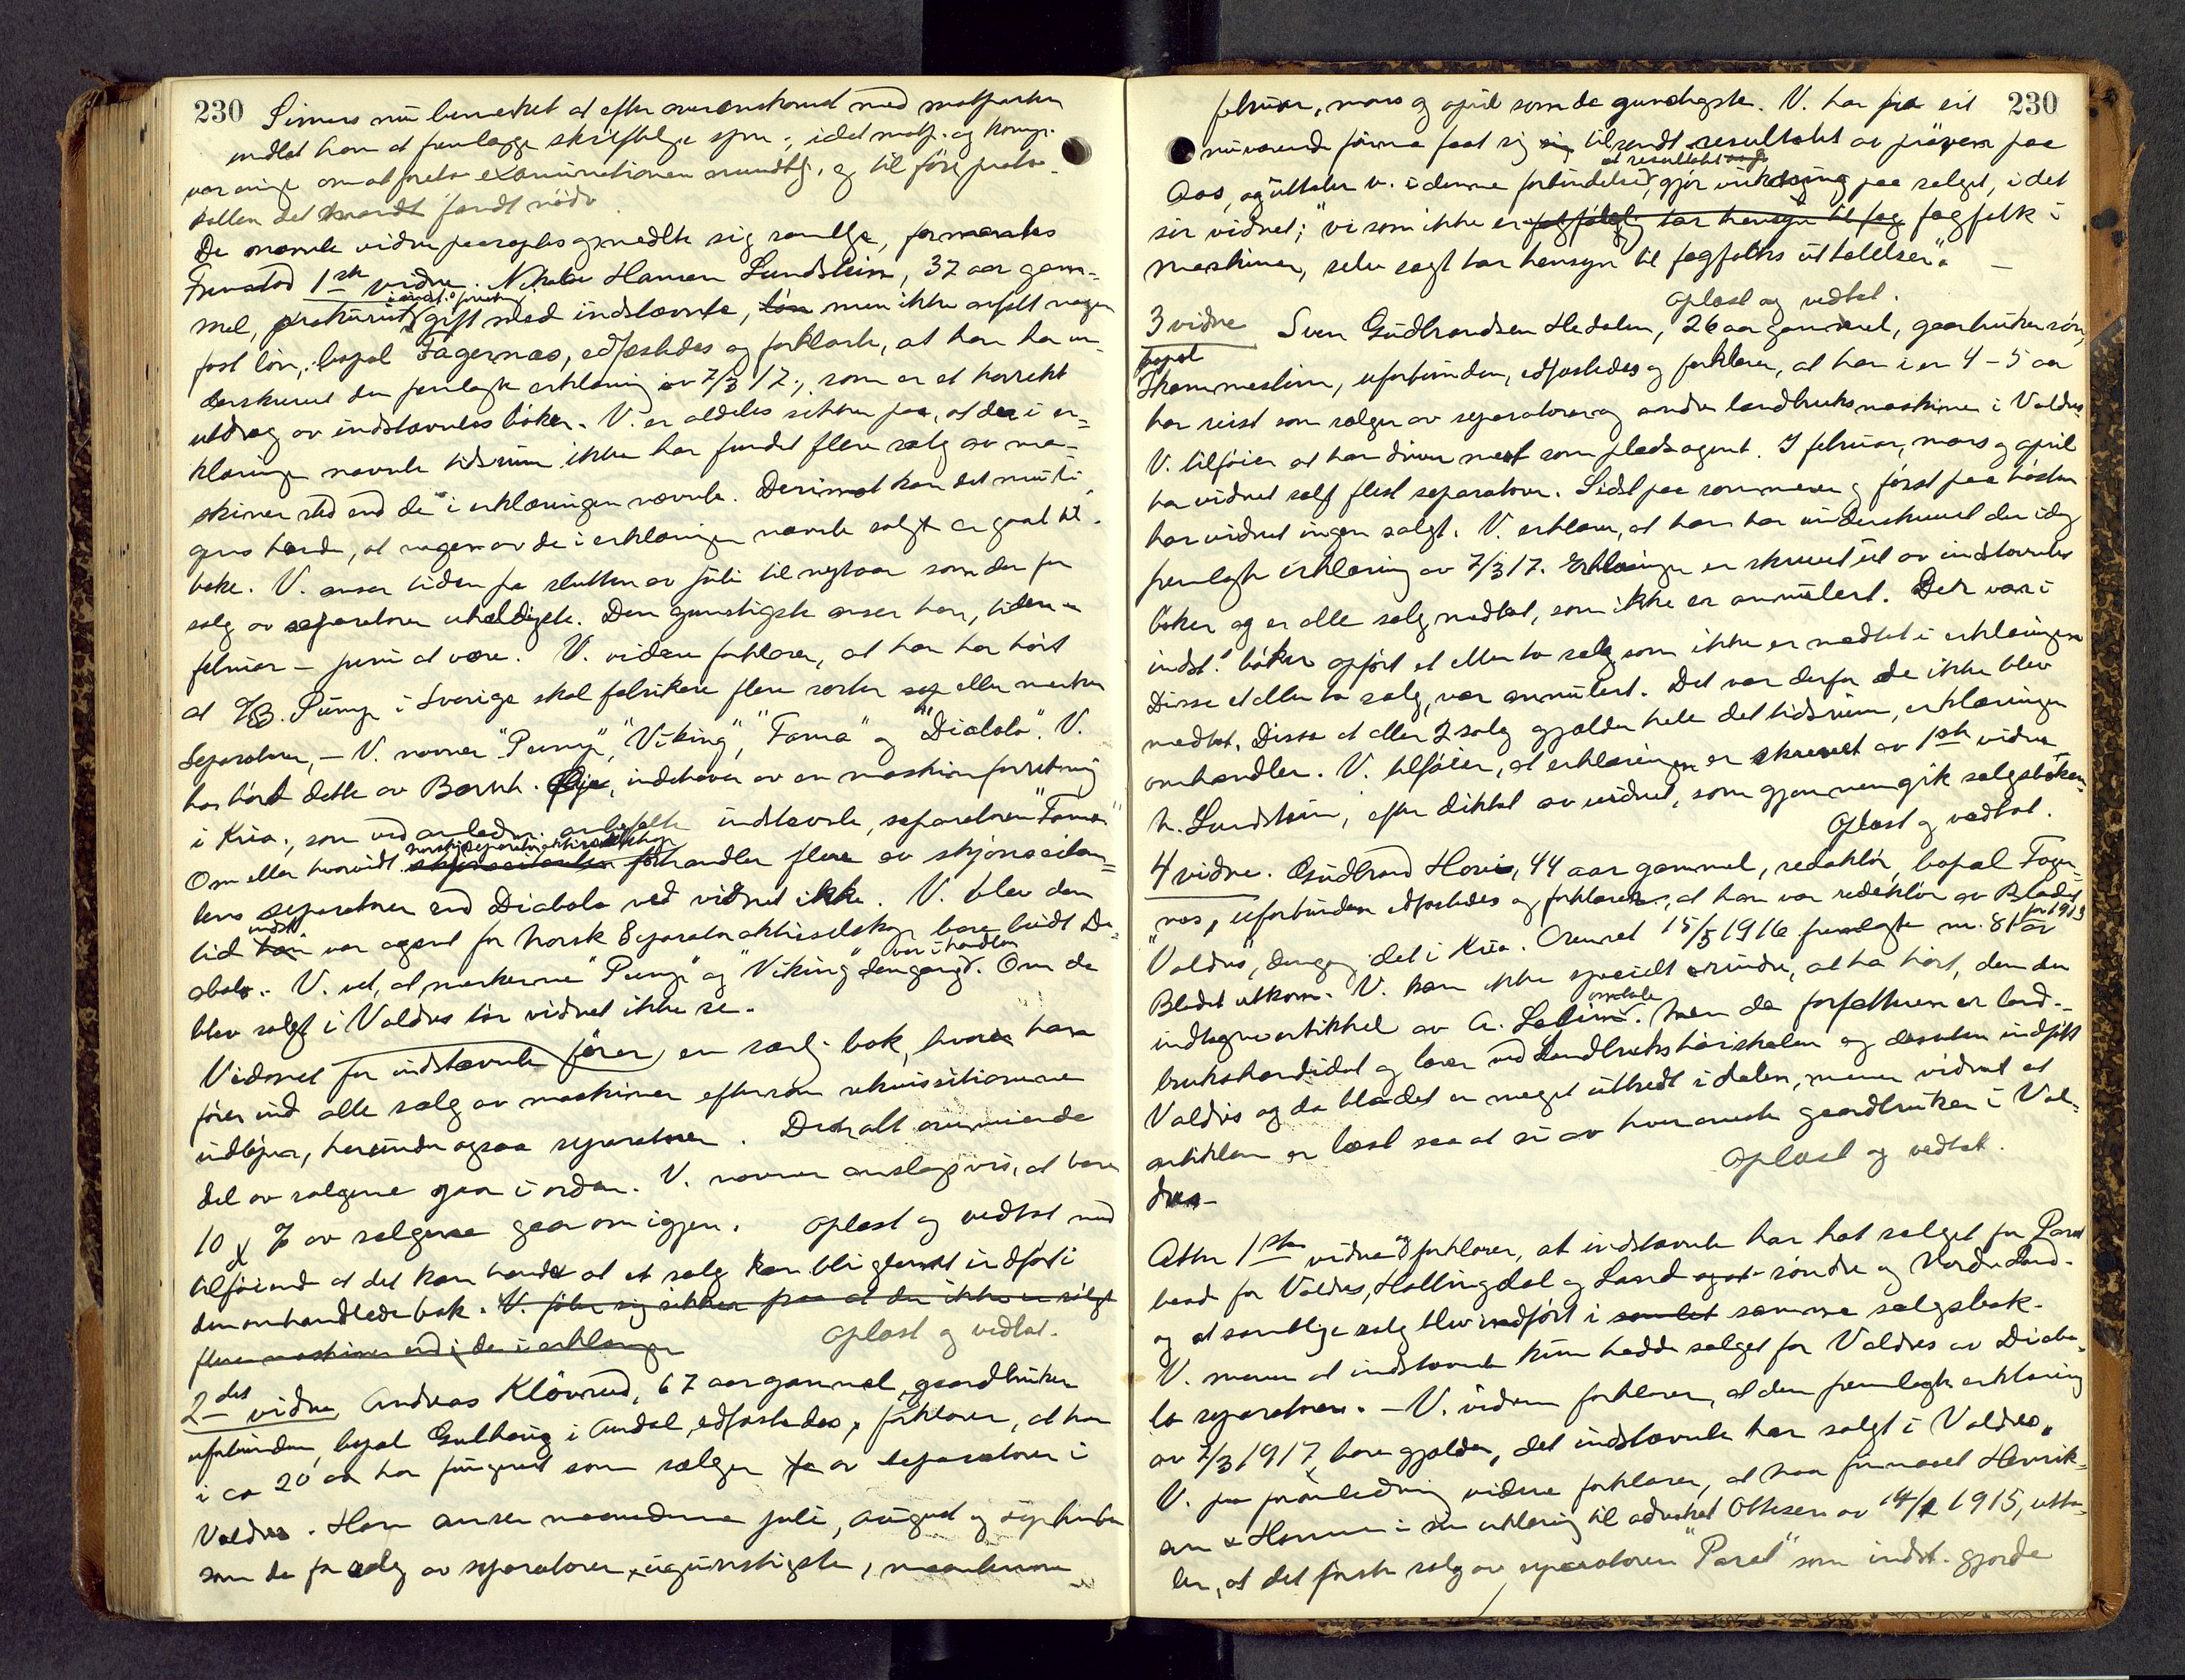 230 Simers nu bemerket at efter overenskomst med motparten
undlot han at fremlægge skriftlige spm., idet motp. og komp.
var enige om at foreta examinationen mundtlig, og til føre proto-
kollen det fandt nödv.
De nævnte vidner paaroptes og meldte sig samtlige, formantes
Fremstod 1ste vidne. Nikolai Hansen Lundstein, 37 aar gam-
mel, prokurist i indst.s forretning gift med indstævnte, løn men ikke avfølt nogen
fast løn, bopæl Fagernæs, edfæstedes og forklarte, at han har un-
derskrevet den fremlagte erklæring av 7/3 17., som er et korrekt
utdrag av indstævntes bøker. V. er aldeles sikker paa, at der i er-
klæringen nævnte tidsrum ikke har fundet flere salg av ma-
skiner sted end de i erklæringen nævnte. Derimot kan det muli-
gens hænde, at nogen av de i erklæringen nævnte salg er gaat til-
bake. V. anser tiden fra slutten av juli til nytaar som den for
salg av separatorer uheldigste. Den gunstigste anser han, tiden
februar – juni at være. V. videre forklarer, at han har hørt
at A/B. Pump i Sverige skal fabrikere flere sorter sep eller merker
Separatorer, – V. nævner "Pump", "Viking", "Fama" og "Diabolo". V.
har hørt dette av Bernh. Øje, indehaver av en maskinforretning
i Kria., som ved anledn. anbefalte indstævnte, separatoren "Fama"
Om eller hvorvidt norsk separator aktieselskap forhandler flere av skjønseilan-
tens separatorer end Diabolo ved vidnet ikke. V. blev den
tid indst. var agent for Norsk Separatoraktieselskap bare budt Di-
abolo. V. vet, at merkerne "Pump" og "Viking" var i handlen dengang. Om de
blev solgt i Valdres tør vidnet ikke se.
Vidnet for indstævnte fører en særlig bok, hvori han
fører ind alle salg av maskiner eftersom rekvisitionerne
indløper, herunder ogsaa separatorer. Den alt overveiende
del av salgene gaar i orden. V. nævner anslagsvis, at bare
10 % av salgene gaar om igjen. Oplæst og vedtat med
tilføiende at det kan hænde at et salg kan bli glemt indført i
den omhandlede bok. V. føler sig sikker paa at der ikke er solgt
flere maskiner end i de i erklæringen Oplæst og vedtat.
2det vidne Andreas Kløvrud, 67 aar gammel, gaardbruker
uforbunden, bopæl Gulhaug i Aurdal, edfæstedes, forklarer, at han
i ca 20 aar har fungeret som sælger av separatorer i
Valdres. Han anser maanederne juli, august og september
som de for salg av separatorer ugunstigste, maanderne
februar, mars og april som de gunstigste. V. har fra sit 230
nuværende firma faat sig tilsendt resultatet av prøven paa
Aas, og uttaler v. i denne forbindelse, at resultatet gjør virkning paa salget, idet
sir vidnet; "vi som ikke er fagfolk tar hensyn til fag fagfolk i
maskiner, selvsagt tar hensyn til fagfolks uttalelser". –
Oplæst og vedtat.
3 vidne Sven Gudbrandsen Hedalen, 26 aar gammel, gaarbrukersøn,
bopæl
uforbunden, edfæstedes og forklarer, at han i en 4–5 aar
har reist som sælger av separatorer og andre landbruksmaskiner i Valdres
V. tilføier at han driver mest som pladsagent. I februar, mars og april
har vidnet solgt flest separatorer. Sidst paa sommeren og først paa høsten
har vidnet ingen solgt. V. erklærer, at han har underskrevet den idag
fremlagte erklæring av 7/3 17. Erklæringen er skrevet ut av indstævntes
bøker og er alle salg medtat, som ikke er annulert. Det var i
indst.s bøker opført et eller to salg som ikke er medtat i erklæringen
Disse et eller to salg, var annulert. Det var derfor de ikke blev
medtat. Disse et eller 2 salg gjælder hele det tidsrum, erklæringen
omhandler. V. tilføier, at erklæringen er skrevet av 1ste vidne
N. Lundstein, efter diktat av vidnet, som gjennemgik salgsbøken.
Oplæst og vedtat.
4 vidne. Gudbrand Hovi, 44 aar gammel, redaktør, bopæl Fager-
næs, uforbunden edfæstedes og forklarer, at han var redaktør av Bladet
"Valdres", dengang det i Kria. Cirenret 15/5 1916 fremlagte nr. 81 for 1913 av
Bladet utkom. V. kan ikke specielt erindre, at ha hørt, den der
indtagne artikkel av A. omtale. Men da forfatteren er land-
brukskandidat og lærer ved Landbrukshøiskolen og desuten indfødt
Valdris og da bladet er meget utbredt i dalen, mener vidnet at
artiklen er læst saa at si av hver eneste gaardbruker i Val-
dres – Oplæst og vedtat.
Atter 1ste vidne og forklarer, at indstævnte har hat salget for
for Valdres, Hallingdal og Land søndre og Nordre Land
og at samtlige salg blev indført i samlet samme salgsbok.
V. mener at indstævnte kun hadde salget for Valdres av Diabo-
lo separatoren. – V. videre forklarer, at den fremlagte erklæring
av 7/3 1917 bare gjælder, det indstævnte har solgt i Valdres.
V. paa foranledning videre forklarer, at naar firmaet Henrik-
sen & Hansen i sin erklæring til advokat Ottesen av 14/1 1915, utta-
ler, at det første salg av separatoren "Parat" som indst. gjorde